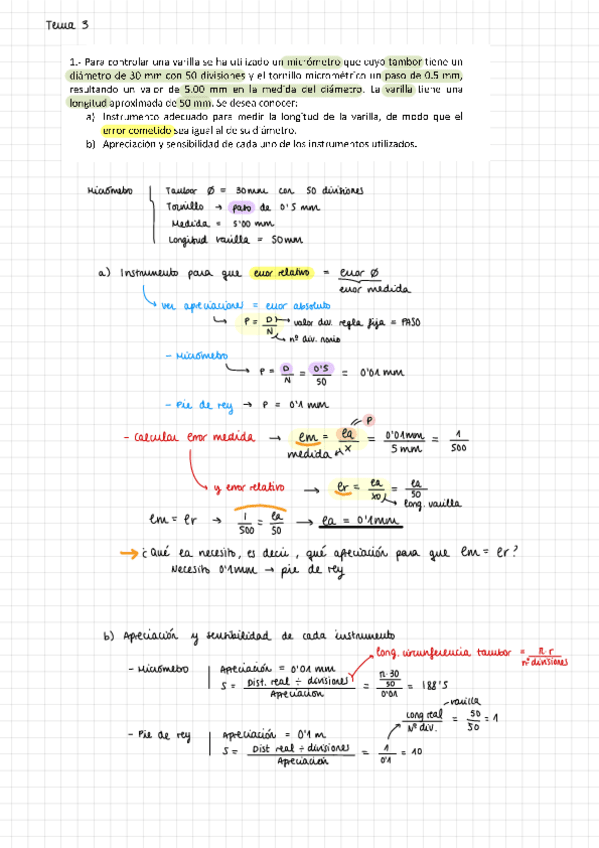 Tema 3
1.- Para controlar una varilla se ha utilizado un micrómetro que cuyo tambor tiene un
diámetro de 30 mm con 50 divisiones y el tornillo micrométrico un paso de 0.5 mm,
resultando un valor de 5.00 mm en la medida del diámetro. La varilla tiene una
longitud aproximada de 50 mm. Se desea conocer:
a) Instrumento adecuado para medir la longitud de la varilla, de modo que el
error cometido sea igual al de su diámetro.
b) Apreciación y sensibilidad de cada uno de los instrumentos utilizados.
Micrómetro
Tambor Ø = 30mm con 50 divisiones
Tornillo → paso de 0'5 mm
Medida = 5'00 mm
Longitud varilla = 50mm
a) Instrumento para que error relativo = error Ø / error medida
ver apreciaciones = error absoluto
P = D/N → valor div. regla fija = PASO
nº div. nonio
- Micrómetro
P = D/N = 0'5/50 = 0'01 mm
- Pie de rey → P = 0'1 mm
- Calcular error medida → em = ea/x = 0'01mm/5mm = 1/500
P
medida
y error relativo → er = ea/xo = ea/50
long. varilla
em = er → 1/500 = ea/50 → ea = 0'1mm
→ ¿Qué ea necesito, es decir, qué apreciación para que em = er?
Necesito 0'1mm → pie de rey
b) Apreciación y sensibilidad de cada instrumento
long. circunferencia tambor = π·r / nº divisiones
- Micrómetro
Apreciación = 0'01 mm
S = Dist. real ÷ divisiones / Apreciación = π·30/50 / 0'01 = 188'5
varilla
Long real / Nº div. = 50/50 = 1
- Pie de rey
Apreciación = 0'1 m
S = Dist real ÷ divisiones / Apreciación = 1/0'1 = 10